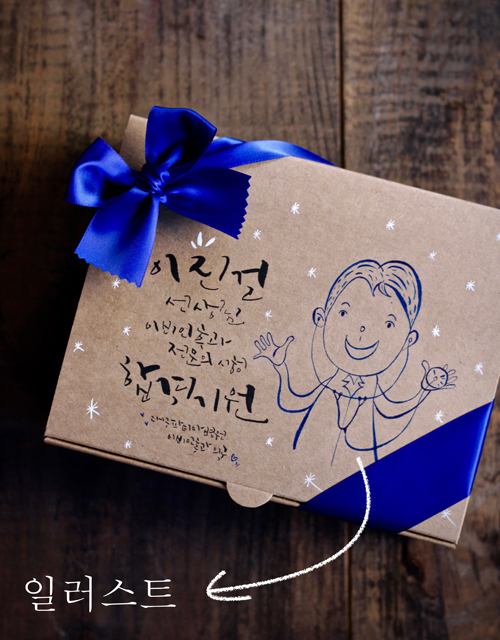 이진걸
선생님
이비인후과
전문의 시험
합격기원
이비인후과
일러스트